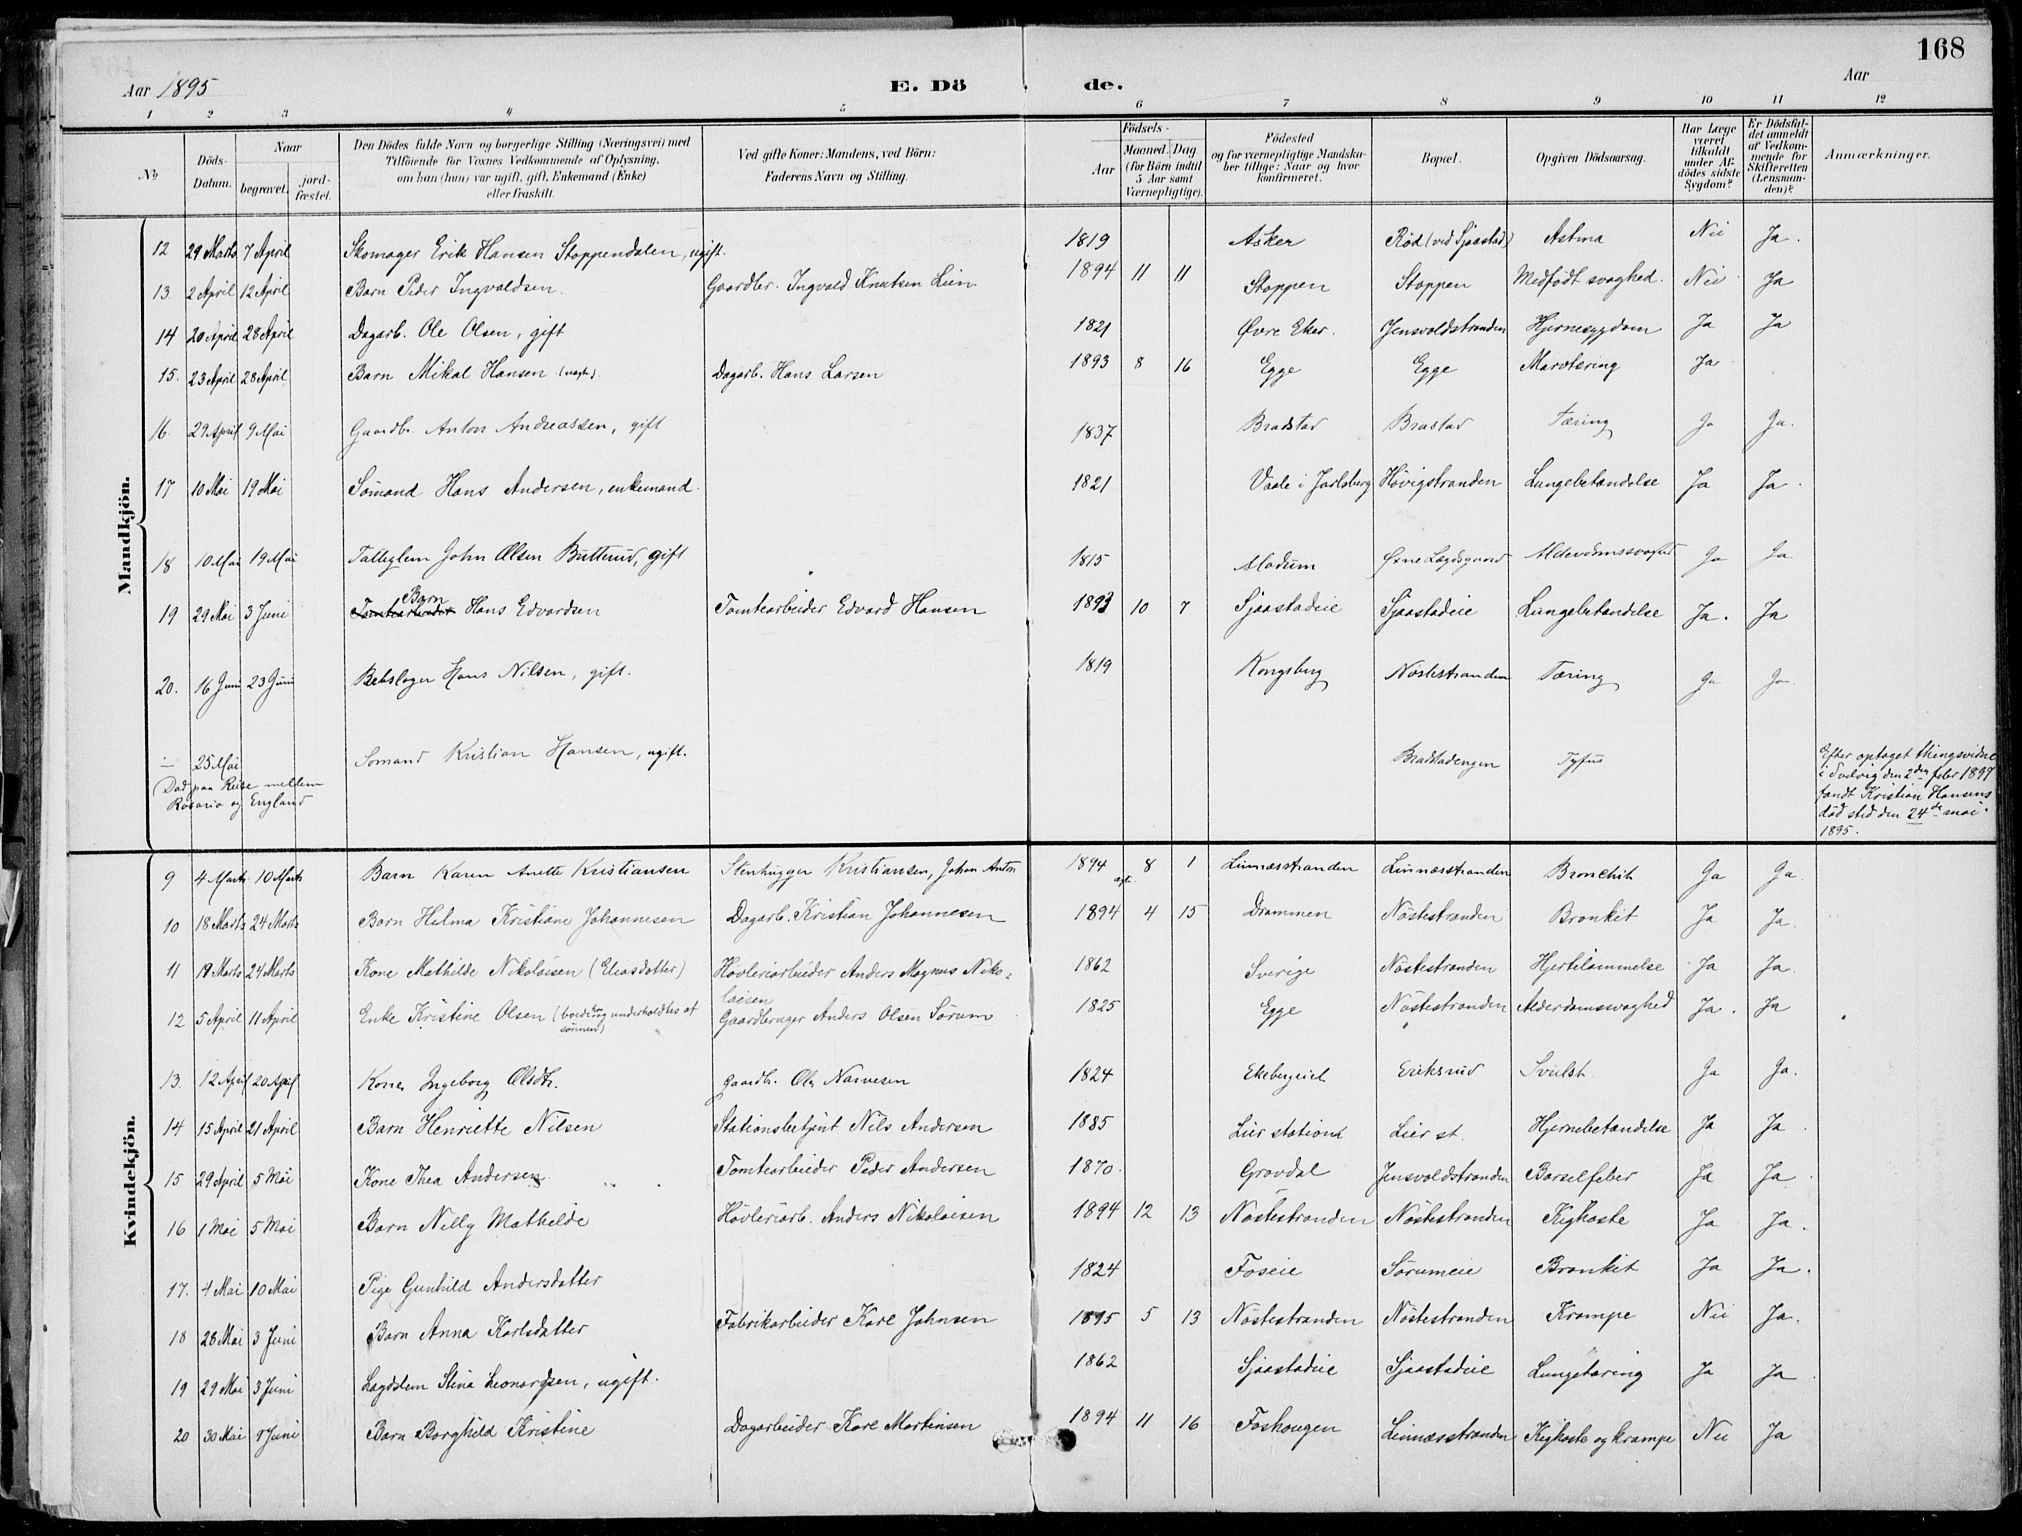 168
Aar 1895 E. Dö de. Aar
1 2 3 4 5 6 7 8 9 10 11 12
No
Döds-Datum.
Naar
begravet. jord-fæstet.
Den Dödes fulde Navn og borgerlige Stilling (Næringsvei) med
Tilföiende for Voxnes Vedkommende af Oplysning,
om han (hun) var ugift, gift, Enkemand (Enke)
eller fraskilt.
Ved gifte Koner: Mandens, ved Börn:
Faderens Navn og Stilling.
Födsels-
Aar
Maaned. Dag
(for Börn indtil
5 Aar samt
Værnepligtige).
Födested
og for værnepligtige Mandska-
ber tillige: Naar og hvor
konfirmeret.
Bopæl.
Opgiven Dödsaarsag.
Har Læge
været
tilkaldt
under Af-
dödes sidste
Sygdom?
Er Dödsfal-
det anmeldt
af Vedkom-
mende for
Skifteretten
(Lensman-
den)?
Anmærkninger.
Mandkjön.
12 29 Marts 7 April Skomager Erik Hansen Stoppendalen, ugift. 1819 Asker Röd (ved Sjaastad) Astma Nei Ja.
13. 2 April 12 April Barn Peder Ingvaldsen. Gaardbr. Ingvald Knutsen Lien 1894 11 11 Stoppen Stoppen Medfödt svaghed. Nei Ja
14 20 April 28 April Dagarb. Ole Olsen, gift 1821 Øvre Eker. Jensvoldstranden Hjernesygdom Ja Ja
15. 23 April 28 April Barn Mikal Hansen Dagarb. Hans Larsen 1893 8 16 Egge Egge Marvtæring Ja
16. 29 April 9 Mai Gaardbr. Anton Andreassen, gift 1837 Bradstad Brastad Tæring Ja Ja.
17 10 Mai 19 Mai Sömand Hans Andersen, enkemand. 1821 Vaale i Jarlsberg Hövigstranden Lungebetændelse Ja Ja.
18 10 Mai 19 Mai John Olsen Butterud, gift 1815 Modum Alderdomssvaghed Ja Ja
19 29 Mai 3 Juni Barn Hans Edvardsen Tomtearbeider Edvard Hansen 1893 10 7 Sjaastadeie Sjaastadeie Lungebetændelse Ja. Ja
20. 16 Juni 23 Juni Hans Nilsen, gift. 1819 Kongsberg Nöstestranden Tæring Ja Ja.
÷ 25 Mai Sömand Kristian Hansen, ugift. Bradstadengen Tyfus
(Död paa Reise mellem
Rosario og England
Efter optaget thingsvidne
i Svelvig den 2den febr 1897
fandt Kristian Hansens
död sted den 24de mai
1895.
Kvindekjön.
9 4 Marts 10 Marts Barn Karen Anette Kristiansen Stenhugger Kristiansen, Johan Anton 1894 8 1 Linnæsstranden Linnæsstranden Bronchit Ja Ja.
10 18 Marts 24 Marts Barn Helma Kristiane Johannesen Dagarb. Kristian Johannesen 1894 4 15 Drammen Nöstestranden Bronkit Ja Ja.
11 19 Marts 24 Marts Kone Mathilde Nikolaisen (Eliasdatter) Hövleriarbeider Anders Magnus Niko-
laisen 1862 Sverige Nöstestranden Hjertelammelse Ja Ja.
12 5 April 11 April Enke Kristine Olsen underholdtes af
sönnen) Gaardbruger Anders Olsen Sörum 1825 Egge Nöstestranden Alderdomssvaghed Ja. Ja
13. 12 April 20 April Kone Ingeborg Olsdtr. Gaardbr. Ole Narvesen 1824 Ekebergeiet Eriksrud Svulst Ja Ja.
14 15 April 21 April Barn Henriette Nilsen Stationsbetjent Nils Andersen 1885 Lier station Lier st. Hjernebetændelse Ja Ja.
15 29 April 5 Mai Kone Thea Andersen Tomtearbeider Peder Andersen 1870. Grøvdal Jensvoldstranden Barselfeber Ja Ja.
16 1 Mai 5 Mai Barn Nelly Mathilde Hövleriarb. Anders Nikolaisen 1894 12 13 Nöstestranden Nöstestranden Kighoste Ja Ja.
17. 4 Mai 10 Mai Pige Gunhild Andersdatter 1824 Foseie Sörumeie Bronkit Ja Ja.
18 28 Mai 3 Juni Barn Anna Karlsdatter Fabrikarbeider Karl Johnsen 1895 5 13 Nöstestranden Nöstestranden Krampe Nei Ja.
19 29 Mai 3 Juni Lægdslem Stina Leonardsen, ugift. 1862 Sjaastadeie Sjaastadeie Lungetæring Ja Ja
20 30 Mai Juni Barn Borghild Kristine Dagarbeider Karl Martinsen 1894 11 16 Foshougen Linnæsstranden Kighoste og krampe Nei Ja